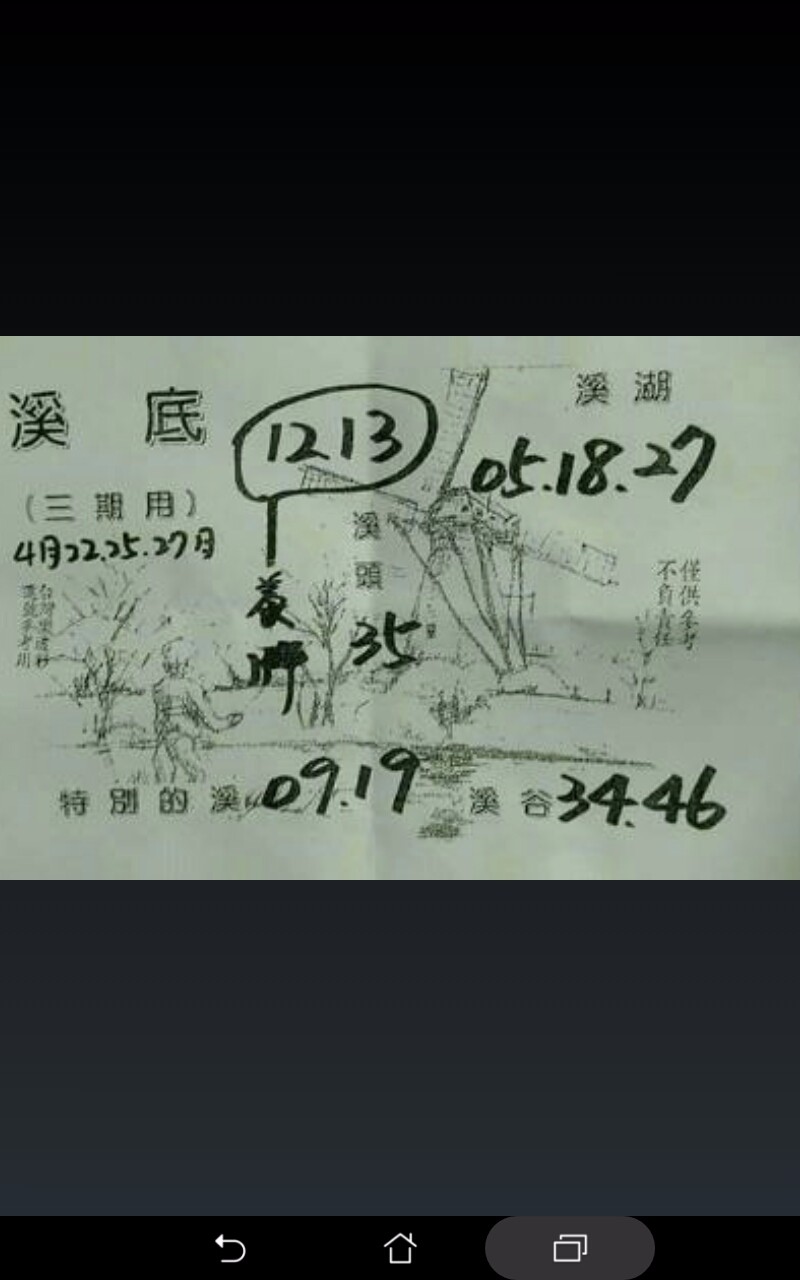 溪底
(三期用)
4月22.25.27日
12 13
養
牌
溪湖
05.18.27
溪頭
35
僅供參考
不負責任
特別的溪 09.19
溪谷 34.46